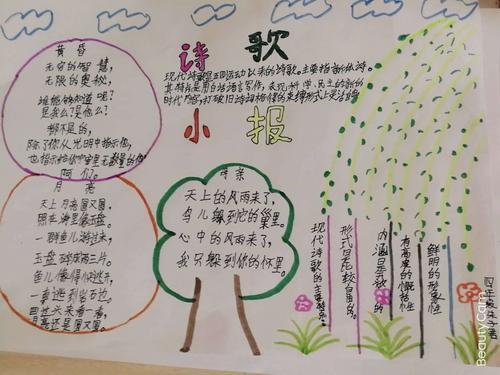 诗歌
小报
现代诗歌是五四运动以来的诗歌。主要指新体诗。
其特点是用白话语言写作，表现科学民主的新的
时代内容，打破旧诗词格律的束缚形式上灵活自由
黄昏
无穷的智慧，
无限的奥秘，
谁能够知道呢？
是我么？是他么？
都不是的，
除了你从光明中指示他，
阿们。
月亮
天上月亮圆又圆，
照在海里像玉盘。
一群鱼儿游过来，
玉盘碎成两三片。
鱼儿吓得快逃开，
一直逃到岩石边。
回过头来看一看，
月亮还是圆又圆。
母亲
天上的风雨来了，
鸟儿躲到它的巢里。
心中的风雨来了，
我只躲到你的怀里。
现代诗歌的主要特点：
形式是比较自由的
内涵是开放的
有高度的概括性
鲜明的形象性
BeautyCam